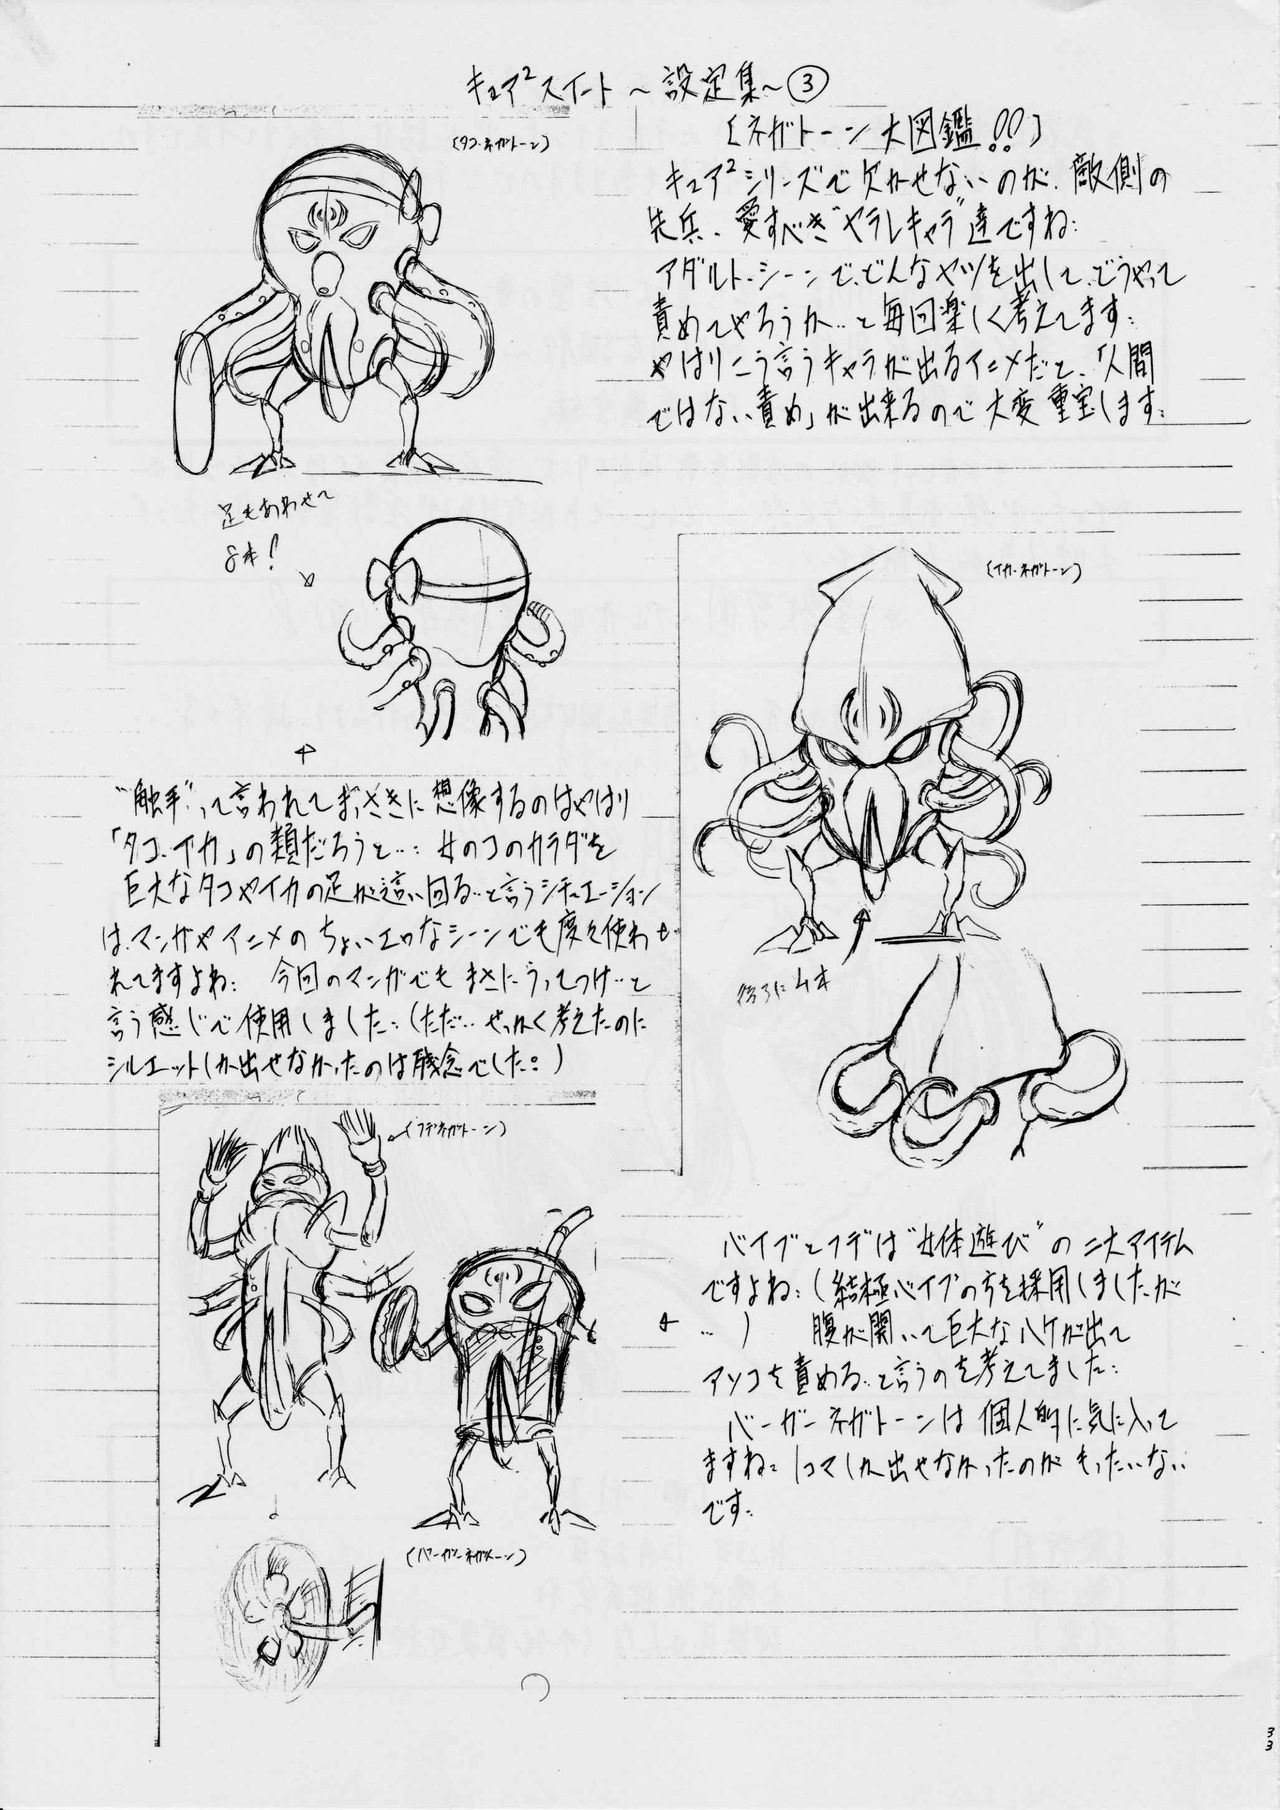 キュア²スイート～設定集～③
〔ネガトーン大図鑑!!〕
(タコ・ネガトーン)
キュア²シリーズで欠かせないのが、敵側の
先兵、愛すべき"ヤラレキャラ"達ですね。
アダルト・シーンで、どんなヤツを出して、どうやって
責めてやろうか…と毎回楽しく考えてます。
やはりこう言うキャラが出るアニメだと、「人間
ではない責め」が出来るので大変重宝します。
足もあわせて
8本!
(イカ・ネガトーン)
後ろに4本
"触手"って言われてまっさきに想像するのはやはり
「タコ、イカ」の類だろうと…。女のコのカラダを
巨大なタコやイカの足が這い回る…と言うシチュエーション
は、マンガやアニメのちょいエロなシーンでも度々使わ
れてますよね。 今回のマンガでもまさにうってつけ…と
言う感じで使用しました。(ただ…せっかく考えたのに
シルエットしか出せなかったのは残念でした。)
(フデネガトーン)
(バーガーネガトーン)
バイブとフデは"女体遊び"の二大アイテム
ですよね。(結極バイブの方を採用しましたが
…) 腹が開いて巨大なハケが出て
アソコを責める…と言うのを考えてました。
バーガーネガトーンは個人的に気に入って
ますね。1コマしか出せなかったのがもったいない
です。
33